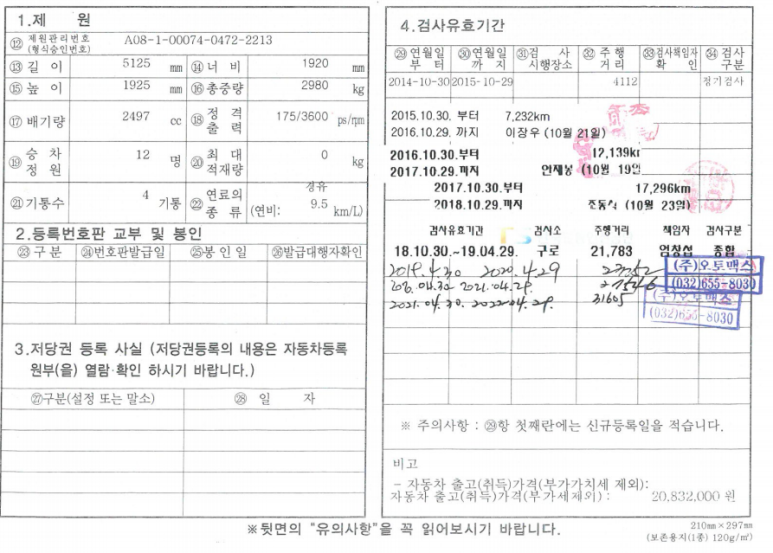 1.제 원
⑫ 제원관리번호 (형식승인번호) A08-1-00074-0472-2213
⑬ 길 이 5125 mm ⑭ 너 비 1920 mm
⑮ 높 이 1925 mm ⑯ 총중량 2980 kg
⑰ 배기량 2497 cc ⑱ 정 격 출 력 175/3600 ps/rpm
⑲ 승 차 정 원 12 명 ⑳ 최 대 적재량 0 kg
㉑ 기통수 4 기통 ㉒ 연료의 종 류 경유 (연비: 9.5 km/L)
2.등록번호판 교부 및 봉인
㉓ 구 분 ㉔번호판발급일 ㉕봉 인 일 ㉖발급대행자확인
3.저당권 등록 사실 (저당권등록의 내용은 자동차등록
원부(을) 열람·확인 하시기 바랍니다.)
㉗구분(설정 또는 말소) ㉘ 일 자
4.검사유효기간
㉙ 연월일 부 터 ㉚ 연월일 까 지 ㉛ 검 사 시행장소 ㉜ 주 행 거리 ㉝검사책임자 확 인 ㉞ 검사 구분
2014-10-30 2015-10-29 4112 정기검사
2015.10.30. 부터 7,232km
2016.10.29. 까지 이장우 (10월 21일)
2016.10.30.부터 12,139k
2017.10.29.까지 안재봉 (10월 19일
2017.10.30.부터 17,296km
2018.10.29.까지 조동식 (10월 23일)
검사유효기간 검사소 주행거리 책임자 검사구분
18.10.30.~19.04.29. 구로 21,783 임창섭 종합
2019.4.30 2020.4.29
(주)오토맥스
04.30 2021.04.29.
(032)655-8030
2021.04.30. 2022.04.29. 31605
(주)오토맥스
(032)655-8030
※ 주의사항 : ㉙항 첫째란에는 신규등록일을 적습니다.
비고
- 자동차 출고(취득)가격(부가가치세 제외):
자동차 출고(취득)가격(부가세제외) : 20,832,000 원
※뒷면의 "유의사항"을 꼭 읽어보시기 바랍니다.
210㎜×297㎜
(보존용지(1종) 120g/㎡)